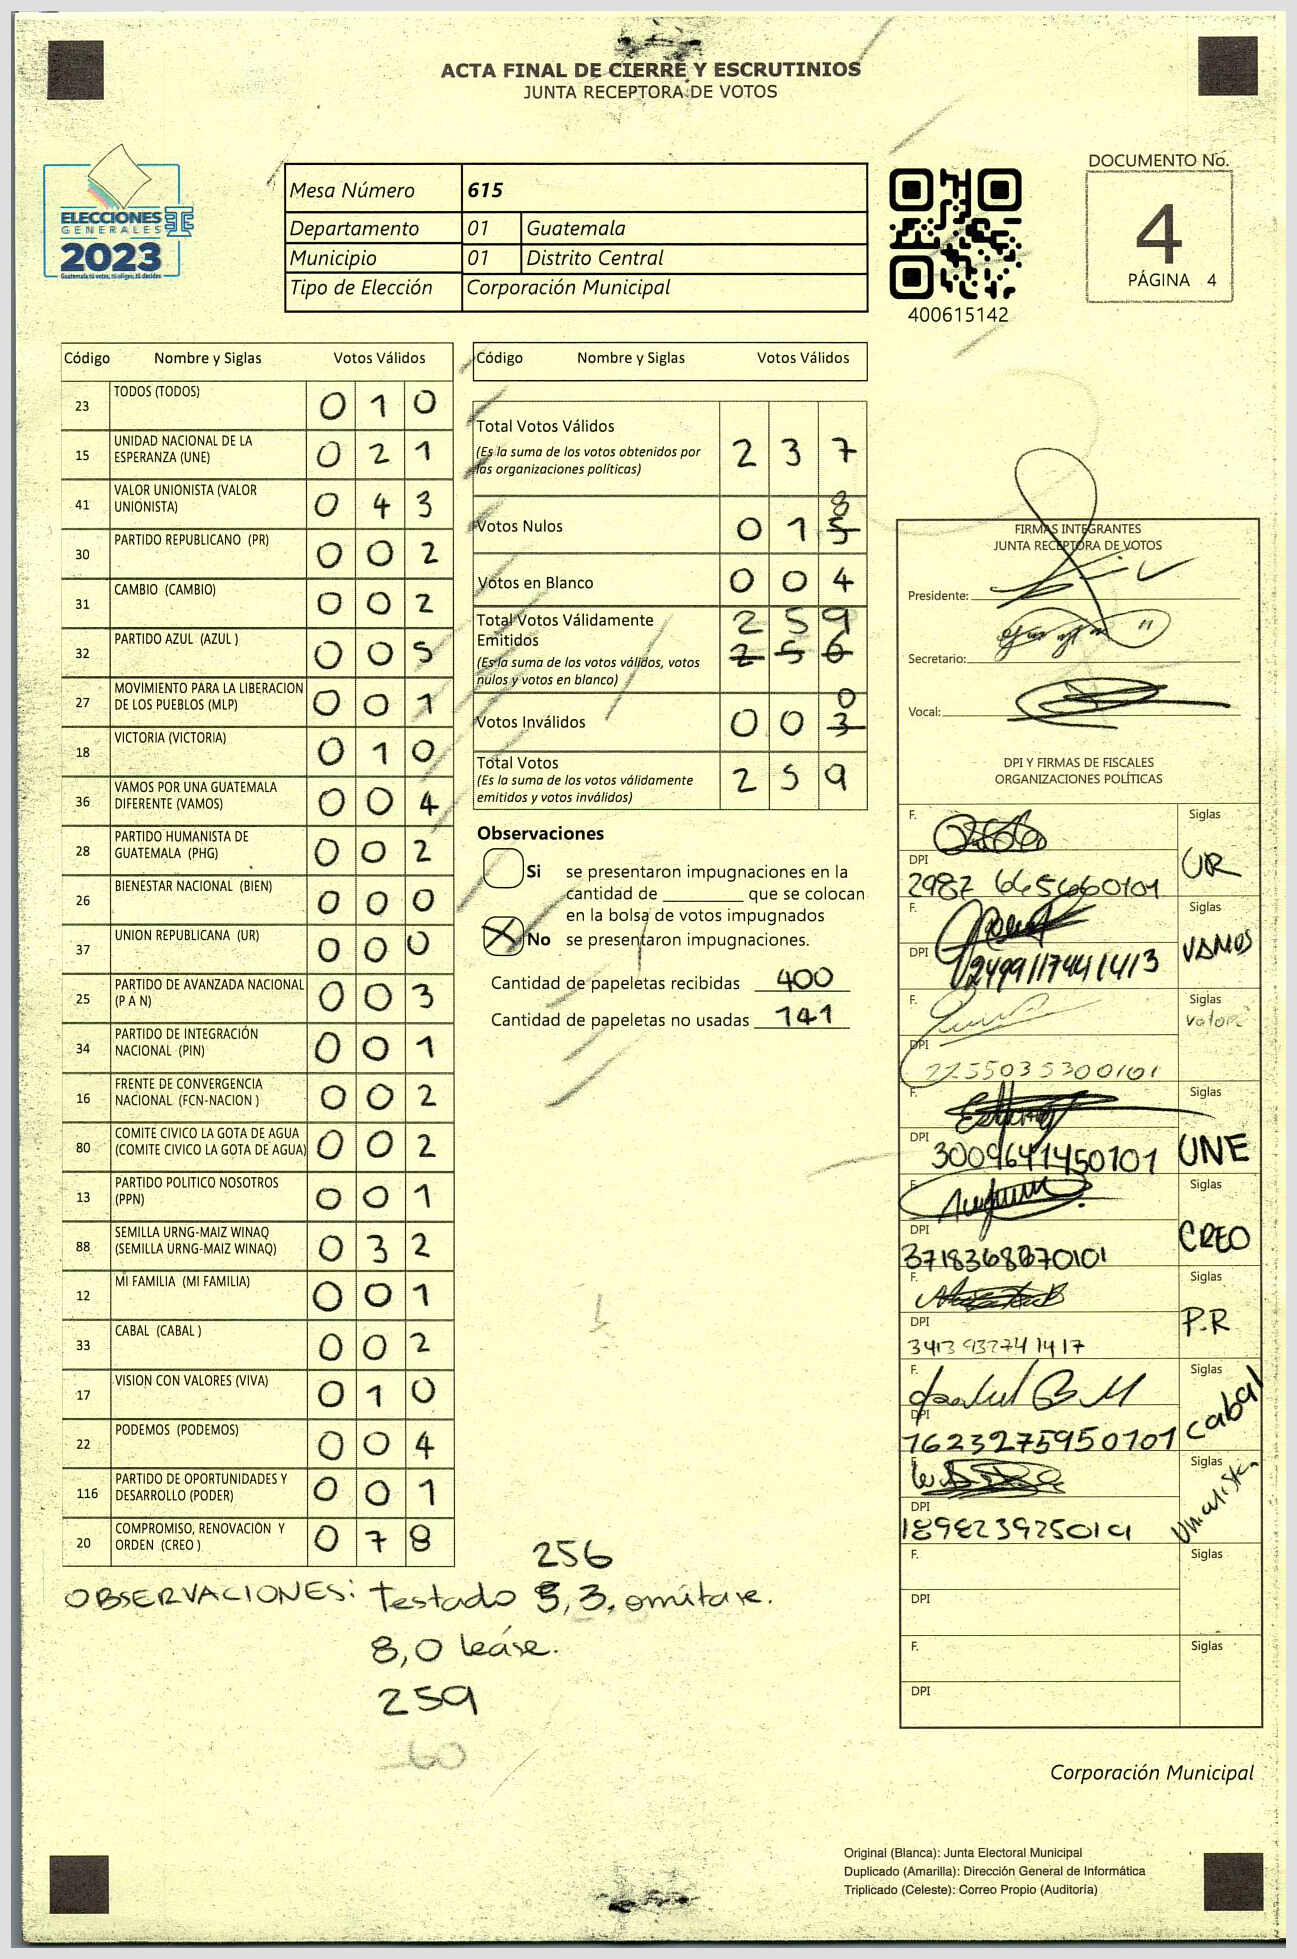 ACTA FINAL DE CIERRE Y ESCRUTINIOS
JUNTA RECEPTORA DE VOTOS
ELECCIONES
GENERALES
2023
Guatemala tú votas, tú eliges, tú decides
Mesa Número 615
Departamento 01 Guatemala
Municipio 01 Distrito Central
Tipo de Elección Corporación Municipal
400615142
DOCUMENTO No.
4
PÁGINA 4
Código Nombre y Siglas Votos Válidos
23 TODOS (TODOS) 0 1 0
15 UNIDAD NACIONAL DE LA ESPERANZA (UNE) 0 2 1
41 VALOR UNIONISTA (VALOR UNIONISTA) 0 4 3
30 PARTIDO REPUBLICANO (PR) 0 0 2
31 CAMBIO (CAMBIO) 0 0 2
32 PARTIDO AZUL (AZUL ) 0 0 5
27 MOVIMIENTO PARA LA LIBERACION DE LOS PUEBLOS (MLP) 0 0 1
18 VICTORIA (VICTORIA) 0 1 0
36 VAMOS POR UNA GUATEMALA DIFERENTE (VAMOS) 0 0 4
28 PARTIDO HUMANISTA DE GUATEMALA (PHG) 0 0 2
26 BIENESTAR NACIONAL (BIEN) 0 0 0
37 UNION REPUBLICANA (UR) 0 0 0
25 PARTIDO DE AVANZADA NACIONAL (P A N) 0 0 3
34 PARTIDO DE INTEGRACIÓN NACIONAL (PIN) 0 0 1
16 FRENTE DE CONVERGENCIA NACIONAL (FCN-NACION ) 0 0 2
80 COMITE CIVICO LA GOTA DE AGUA (COMITE CIVICO LA GOTA DE AGUA) 0 0 2
13 PARTIDO POLITICO NOSOTROS (PPN) 0 0 1
88 SEMILLA URNG-MAIZ WINAQ (SEMILLA URNG-MAIZ WINAQ) 0 3 2
12 MI FAMILIA (MI FAMILIA) 0 0 1
33 CABAL (CABAL ) 0 0 2
17 VISION CON VALORES (VIVA) 0 1 0
22 PODEMOS (PODEMOS) 0 0 4
116 PARTIDO DE OPORTUNIDADES Y DESARROLLO (PODER) 0 0 1
20 COMPROMISO, RENOVACIÓN Y ORDEN (CREO ) 0 7 8
Código Nombre y Siglas Votos Válidos
Total Votos Válidos 2 3 7
(Es la suma de los votos obtenidos por
las organizaciones políticas)
8
Votos Nulos 0 1 5
Votos en Blanco 0 0 4
Total Votos Válidamente 2 5 9
Emitidos 2 5 6
(Es la suma de los votos válidos, votos
nulos y votos en blanco)
0
Votos Inválidos 0 0 3
Total Votos 2 5 9
(Es la suma de los votos válidamente
emitidos y votos inválidos)
Observaciones
Si se presentaron impugnaciones en la
cantidad de ________ que se colocan
en la bolsa de votos impugnados
X No se presentaron impugnaciones.
Cantidad de papeletas recibidas 400
Cantidad de papeletas no usadas 141
FIRMAS INTEGRANTES
JUNTA RECEPTORA DE VOTOS
Presidente:
Secretario:
Vocal:
DPI Y FIRMAS DE FISCALES
ORGANIZACIONES POLÍTICAS
F. Siglas
UR
DPI
F. Siglas
VAMOS
DPI
F. Siglas
DPI
2255035300101
F. Siglas
UNE
DPI
3009641450101
F. Siglas
CREO
DPI
3718368870101
F. Siglas
P.R
DPI
F. Siglas
cabal
DPI
1623275950101
F. Siglas
DPI
F. Siglas
DPI
F. Siglas
DPI
256
OBSERVACIONES: Testado 5, 3, omítase.
8,0 leáse.
259
Corporación Municipal
Original (Blanca): Junta Electoral Municipal
Duplicado (Amarilla): Dirección General de Informática
Triplicado (Celeste): Correo Propio (Auditoría)